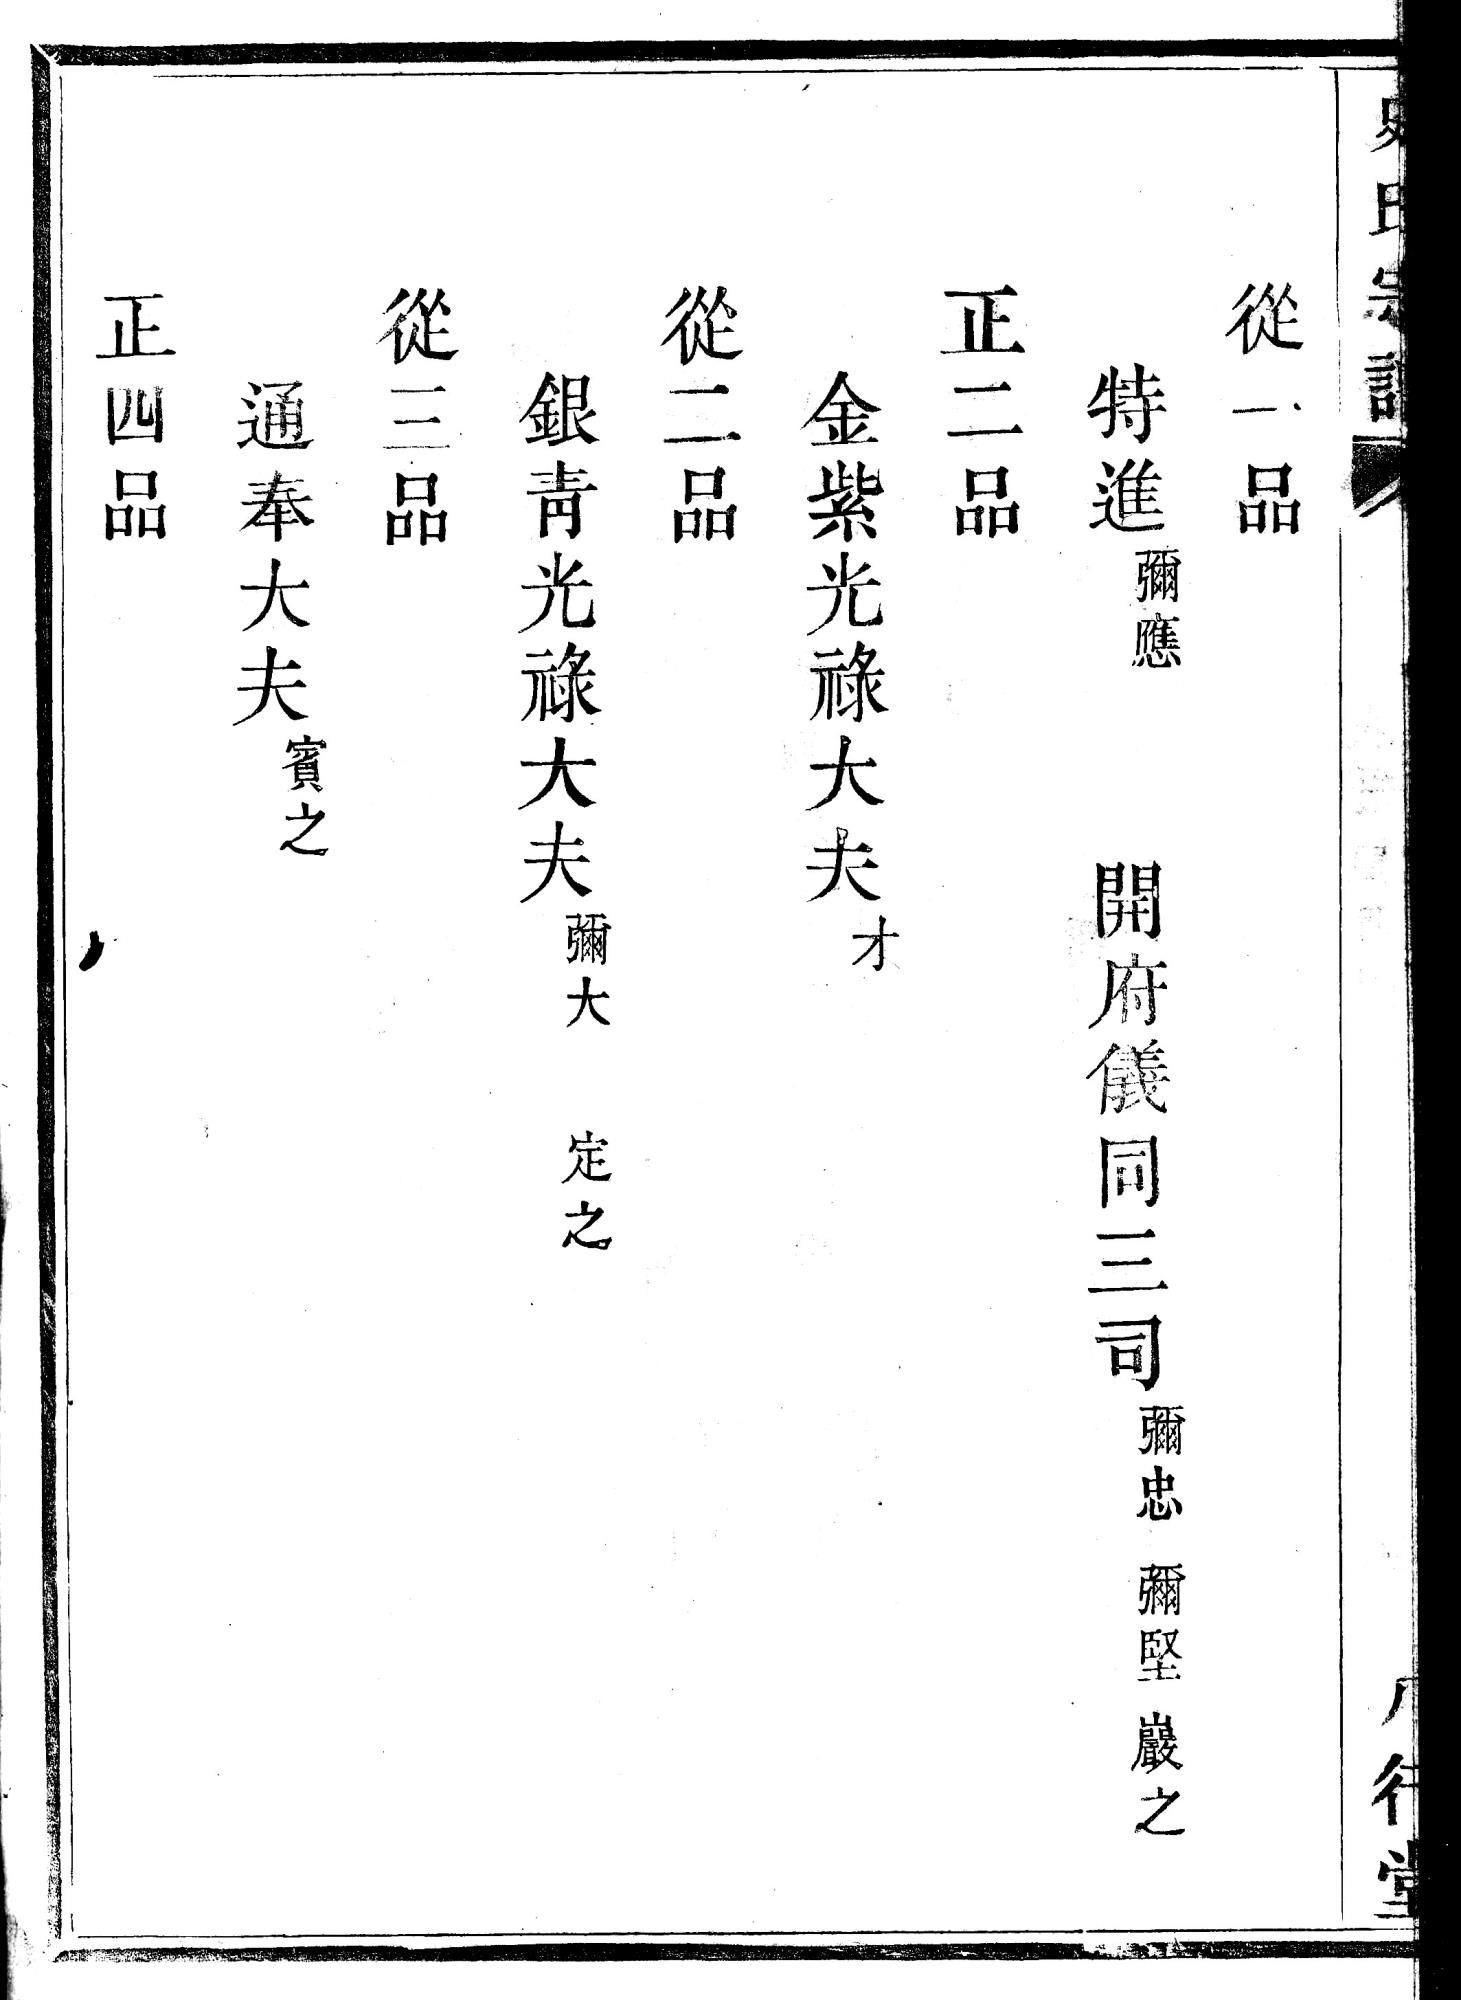 史氏宗譜
八行堂
從一品
特進 彌應 開府儀同三司 彌忠 彌堅 巖之
正二品
金紫光祿大夫 才
從二品
銀青光祿大夫 彌大 定之
從三品
通奉大夫 賓之
正四品